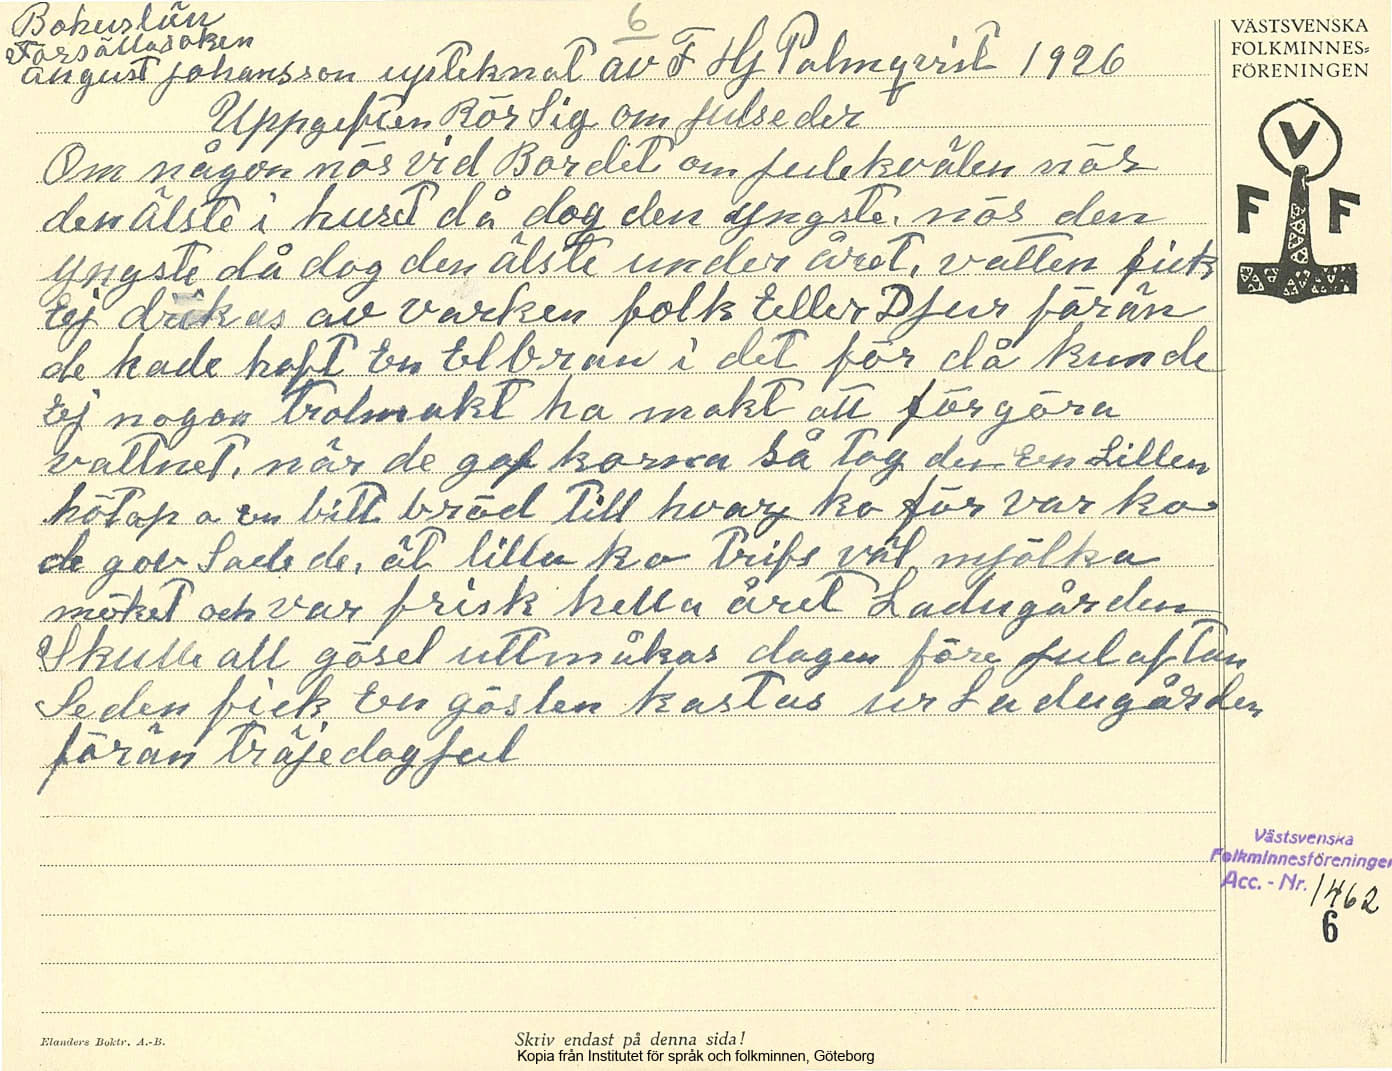 Bohuslän
6
Torsällasoken
august johansson upteknat av F Hj Palmqvist 1926
Uppgeften Rör Sig om julseder
Om någon nös vid Bordet om julekvälen nös
den älste i huset då dog den yngste. nös den
yngste då dog den älste under året, vatten fick
Ej drikas av varken folk Eller Djur förän
de hade haft En Elbran i det för då kunde
Ej nogon trolmakt ha makt att förgöra
vattnet, när de gaf korna så tog den En Lillen
hötap o en bitt bröd till hvarj ko för var ko
de gov Sade de, ät lilla ko trifs väl mjölka
möket och var frisk hella året Ladugården
Skulle all gösel uttmåkas dagen före julaftan
Seden fick En göslen kastas ur Ladugården
förän träjedagjul
VÄSTSVENSKA
FOLKMINNES=
FÖRENINGEN
V
F F
Västsvenska
Folkminnesföreningen
Acc. - Nr. 1462
6
Elanders Boktr. A.-B.
Skriv endast på denna sida!
Kopia från Institutet för språk och folkminnen, Göteborg